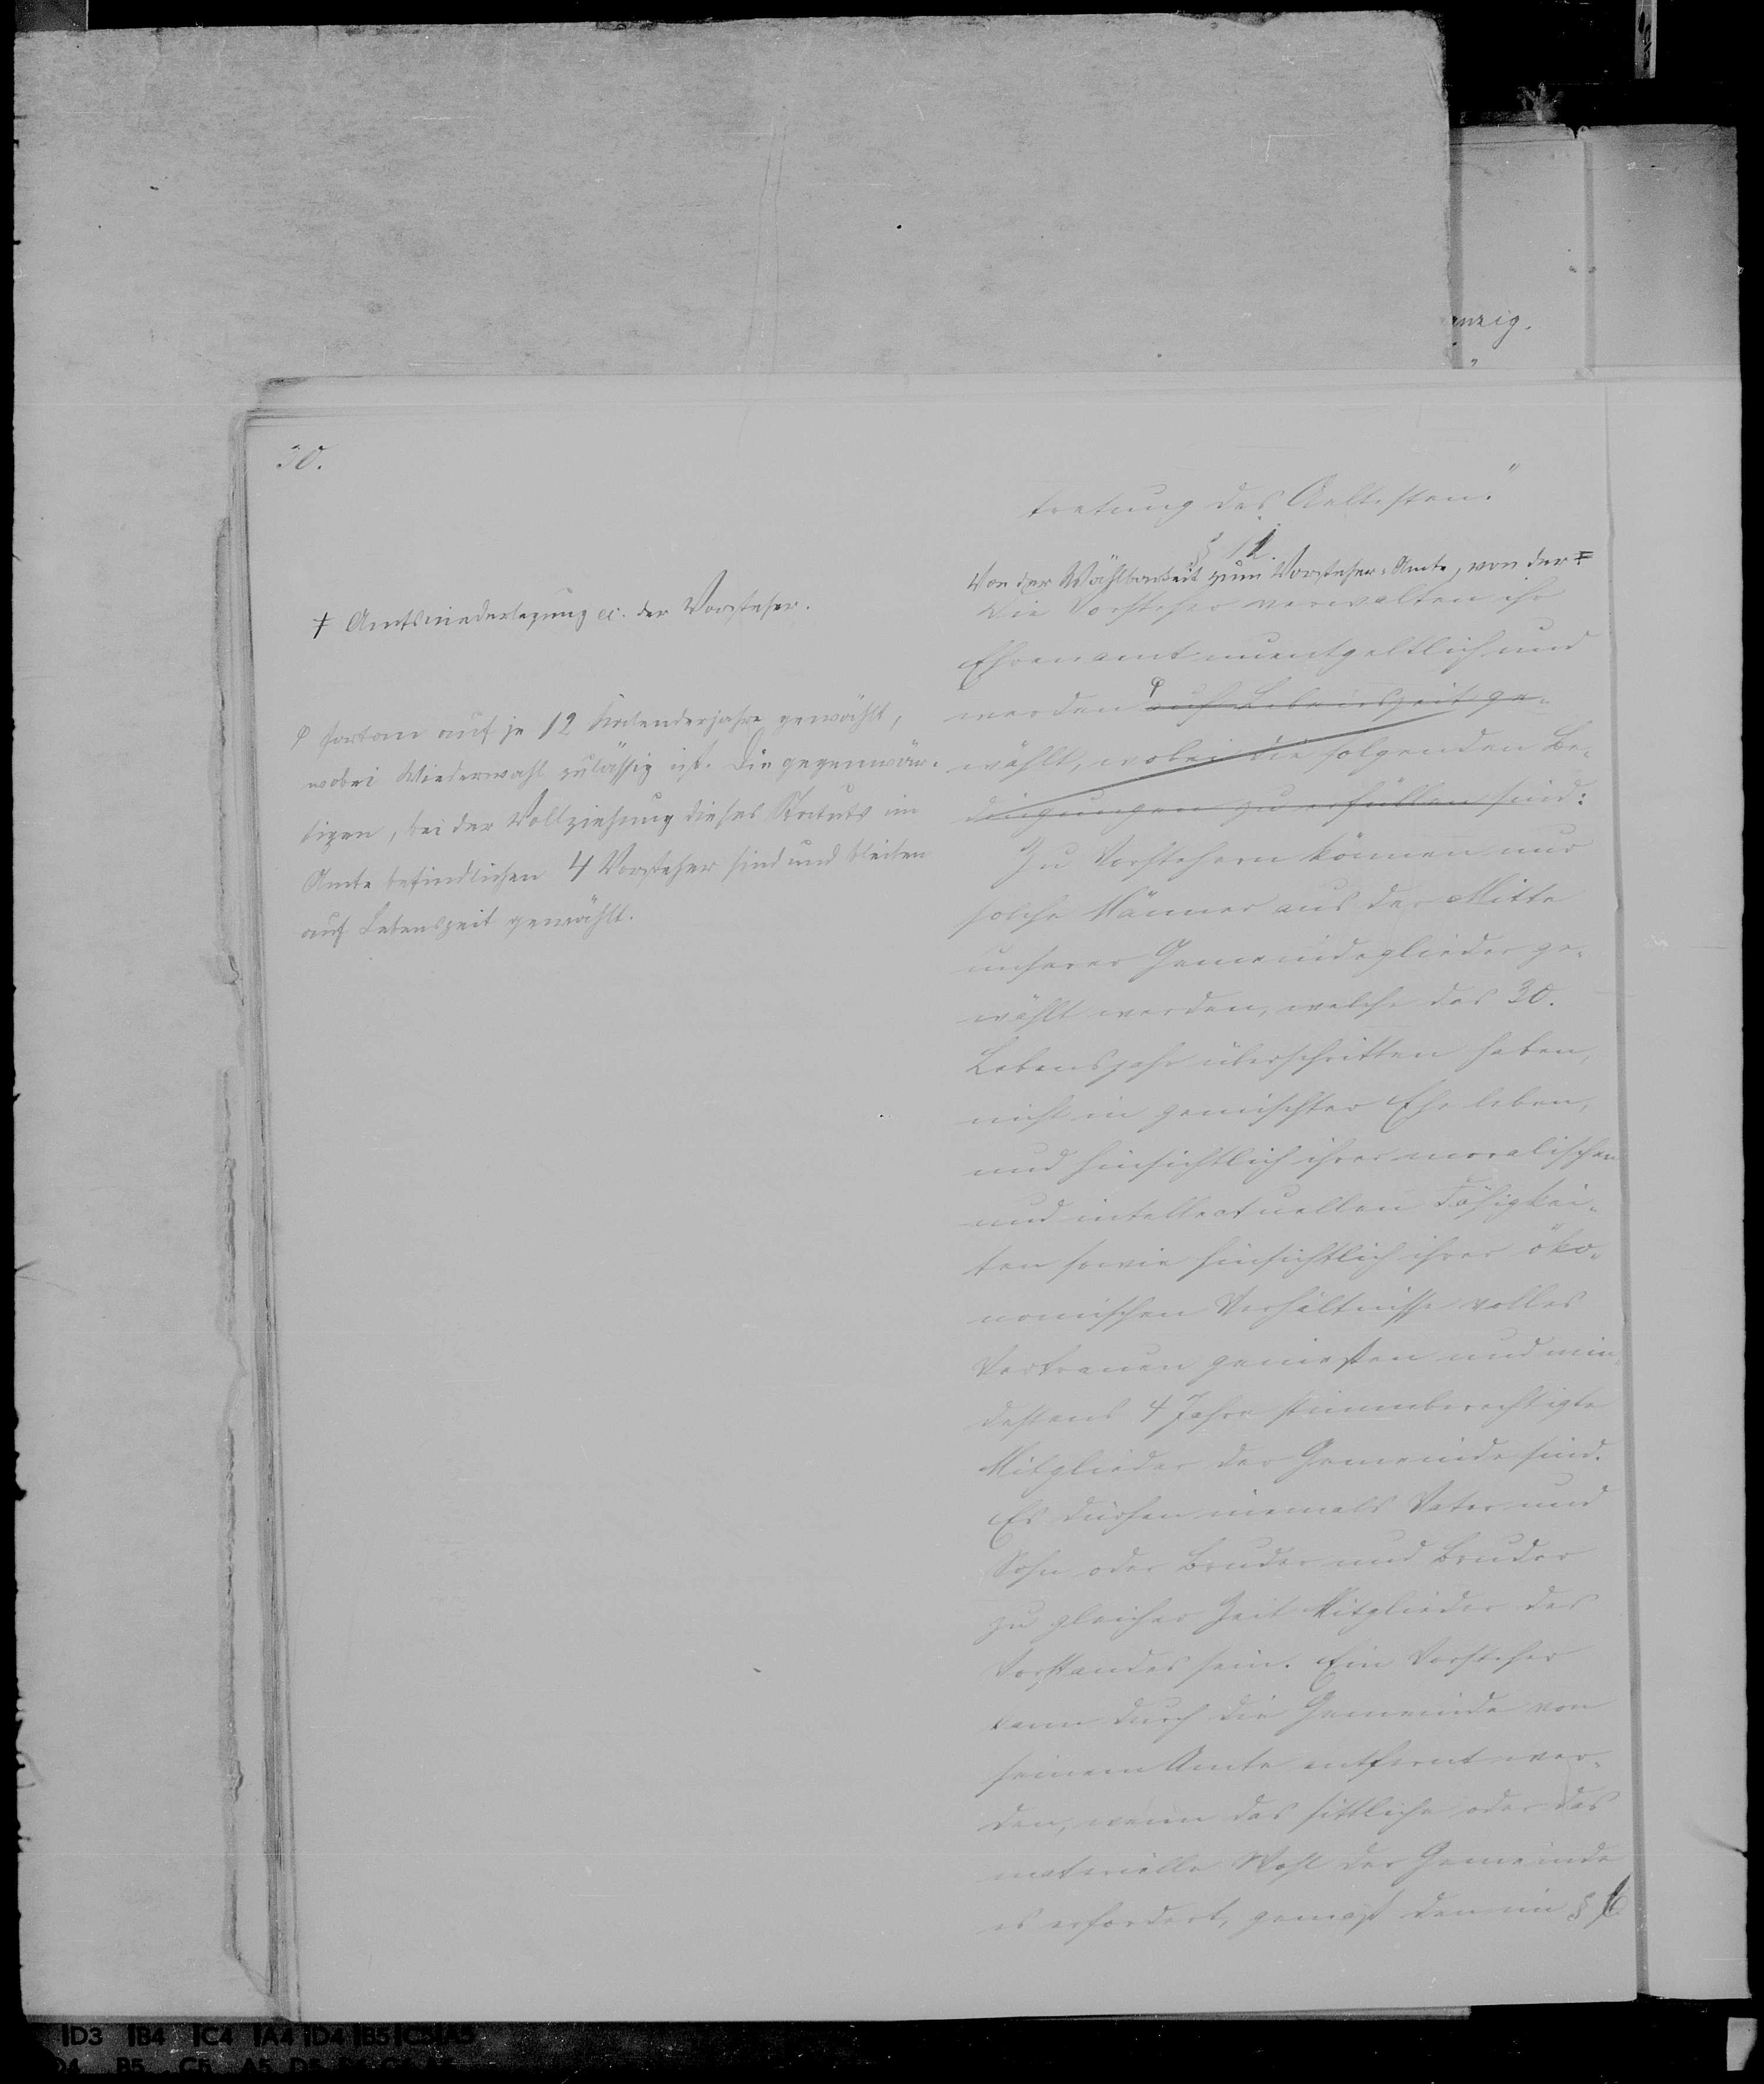 anzig.
30.
tretung des Aeltesten."
§ 11.
Von der Wählbarkeit zum Vorsteher-Amte, von der ‡
‡ Amtsniederlegung ec. der Vorsteher.
Die Vorsteher verwalten ihr
Ehrenamt unentgeltlich und
werden φ auf Lebenszeit ge-
wählt, wobei die folgenden Be-
dingungen zu erfüllen sind:
φ fortan auf je 12 Kalenderjahre gewählt,
wobei Wiederwahl zulässig ist. Die gegenwär-
tigen, bei der Vollziehung dieses Statuts im
Amte befindlichen 4 Vorsteher sind und bleiben
auf Lebenszeit gewählt.
Zu Vorstehern können nur
solche Männer aus der Mitte
unserer Gemeindeglieder ge-
wählt werden, welche das 30.
Lebensjahr überschritten haben,
nicht in gemischter Ehe leben,
und hinsichtlich ihrer moralischen
und intellectuellen Fähigkei-
ten sowie hinsichtlich ihrer öko-
nomischen Verhältnisse volles
Vertrauen genießen und min-
destens 4 Jahre stimmberechtigte
Mitglieder der Gemeinde sind.
Es dürfen niemals Vater und
Sohn oder Bruder und Bruder
zu gleicher Zeit Mitglieder des
Vorstandes sein. Ein Vorsteher
kann durch die Gemeinde von
seinem Amte entfernt wer-
den, wenn das sittliche oder das
materielle Wohl der Gemeinde
es erfordert, gemäß den im §
ID3 IB4 IC4 IA4 ID4 IB5 IC5 IA5
D4 B5 C5 A5 D5